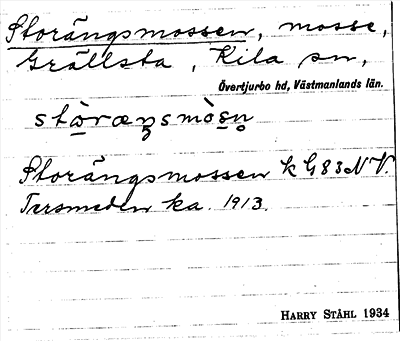 Storängsmossen, mosse,
Grällsta, Kila sn,
Övertjurbo hd, Västmanlands län.
stòræŋsmòsn̥
Storängsmossen k G83NV.
Tersmeden ka. 1913.
HARRY STÅHL 1934